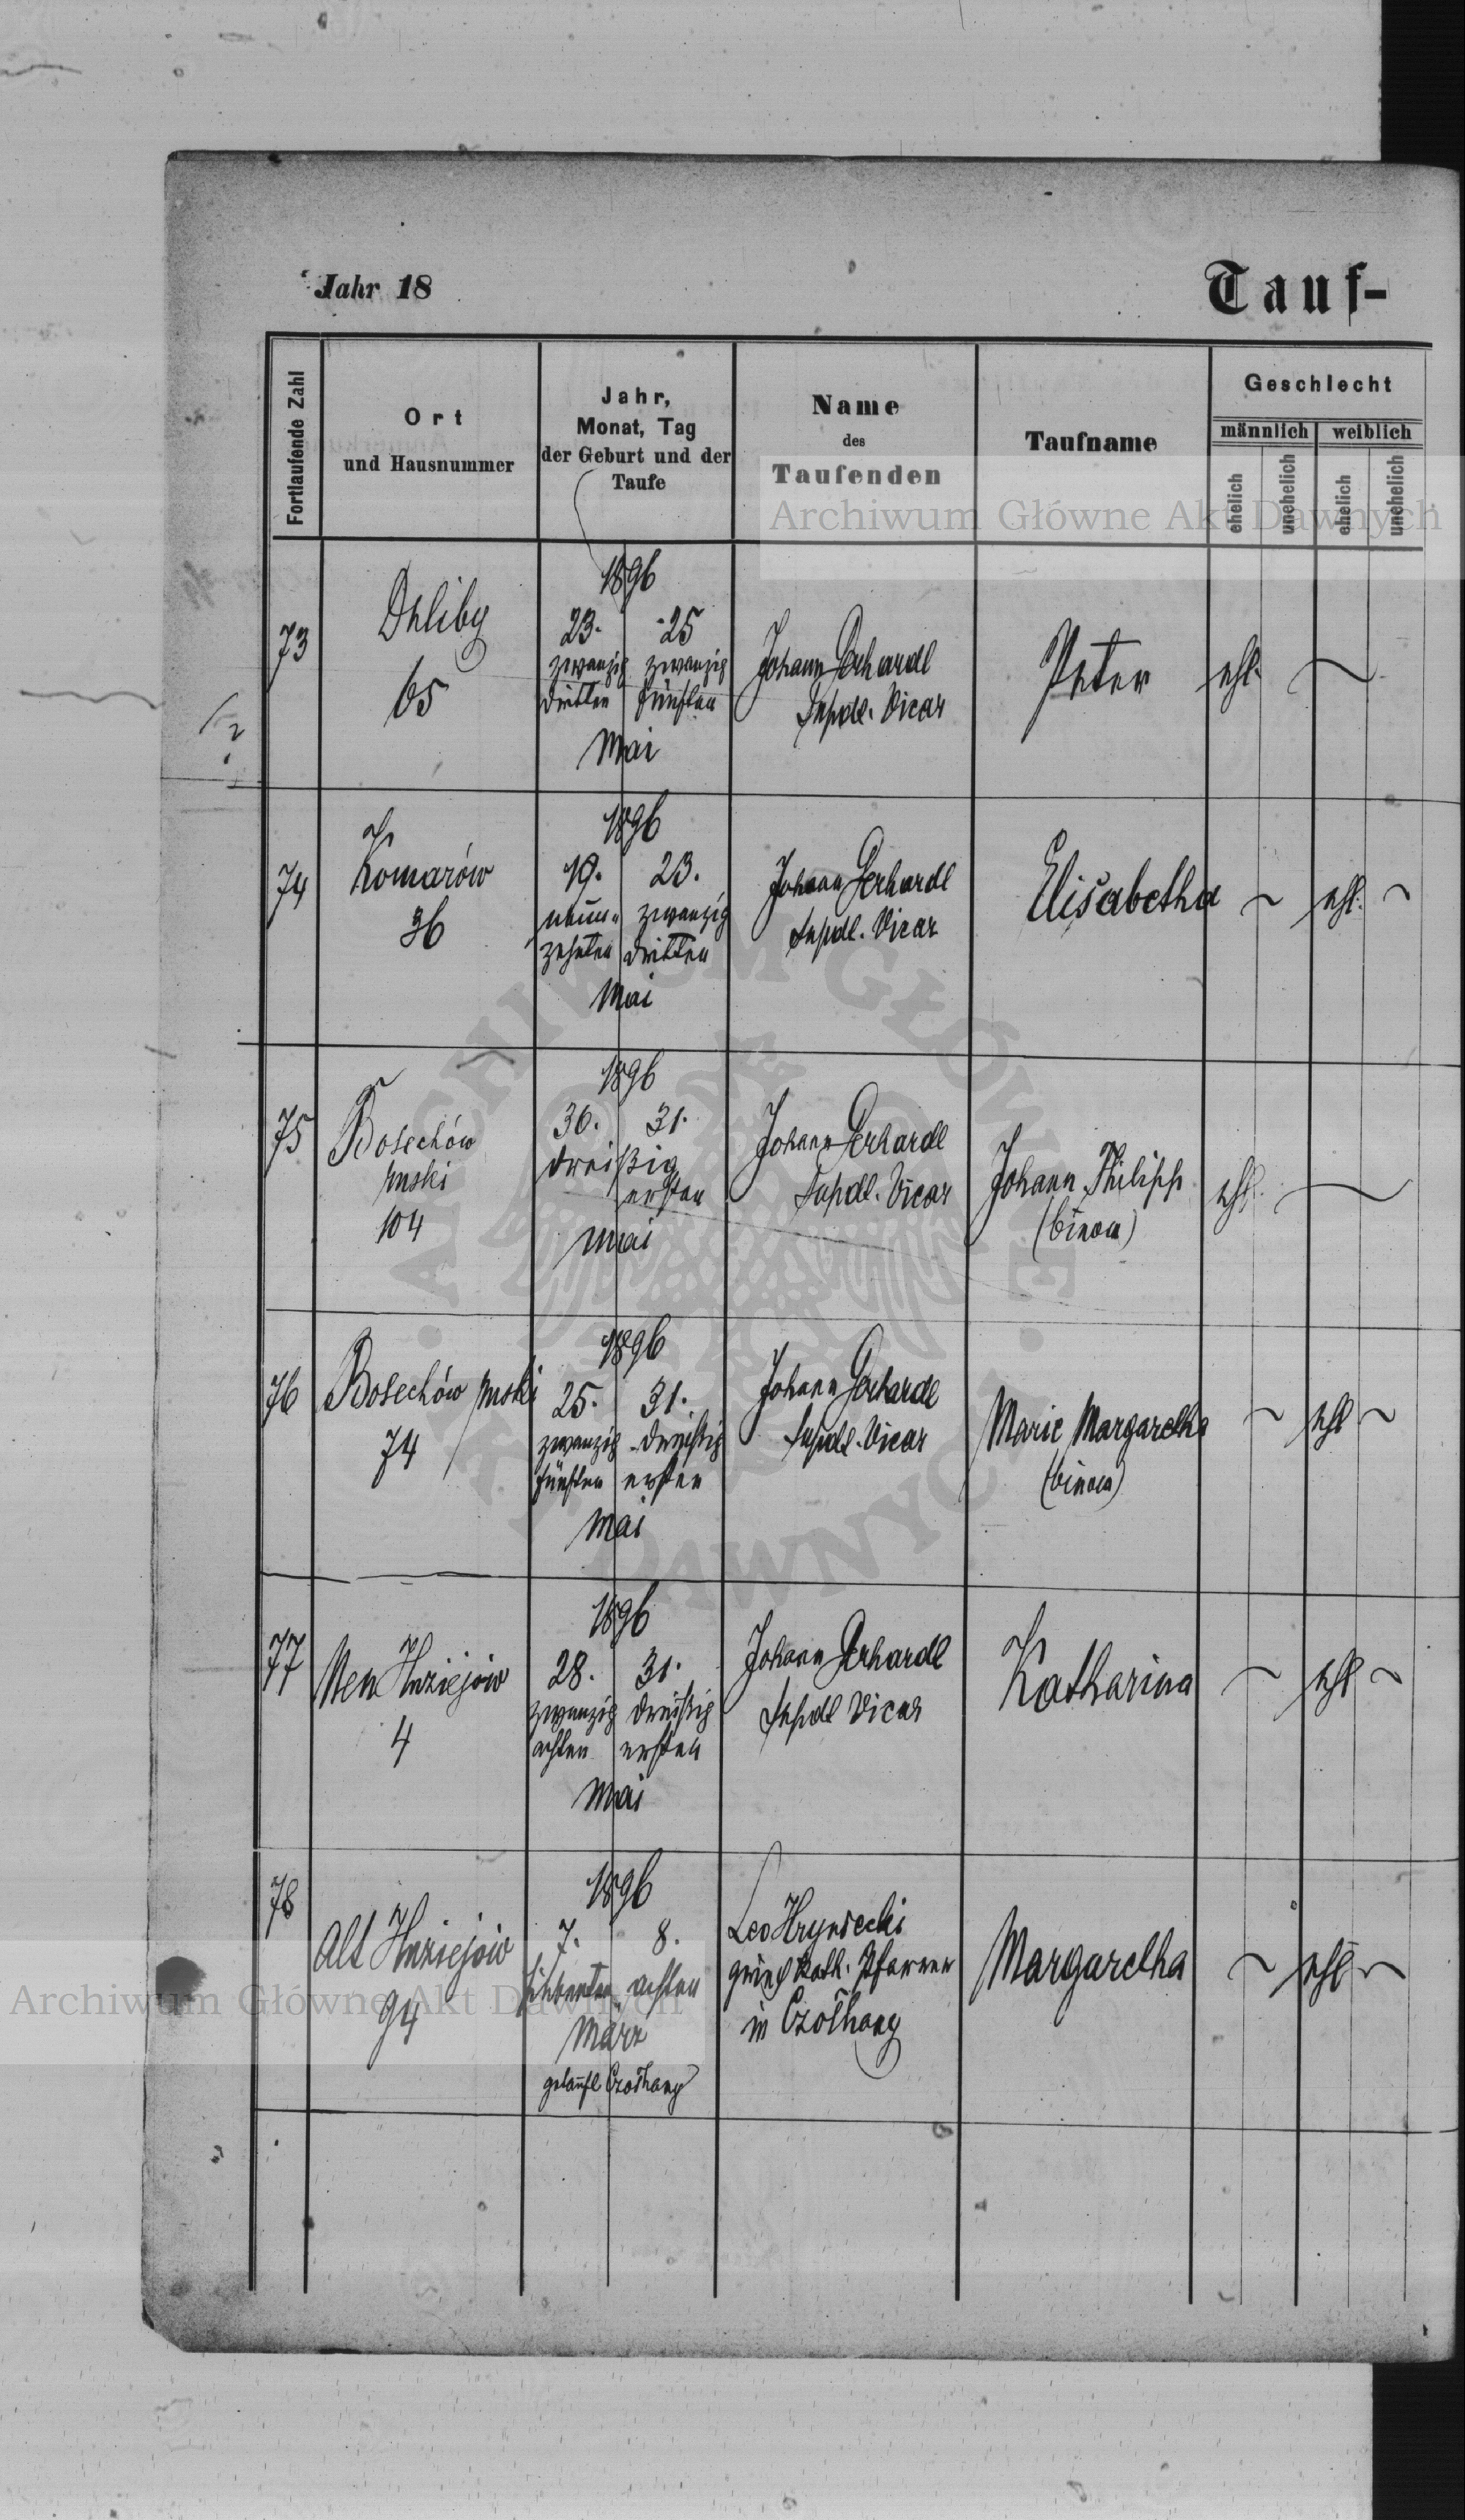 Jahr 18
Tauf-
Fortlaufende Zahl
Ort
und Hausnummer
Jahr,
Monat, Tag
der Geburt und der
Taufe
Name
des
Taufenden
Taufname
Geschlecht
männlich
weiblich
ehelich
unehelich
ehelich
unehelich
Archiwum Główne Akt Dawnych
73
65
1896
23. 25
zwanzig zwanzig
dritten fünften
Mai
Johann Gerhardt
Supdt. Vicar
Peter
ehl.
74
Komarów
36
1896
19. 23.
neun- zwanzig
zehnten dritten
Mai
Johann Gerhardt
Supdt. Vicar
Elisabetha
ehl.
75
Bolechów
ruski
104
1896
30. 31.
dreißig
ersten
Mai
Johann Gerhardt
Supdt. Vicar
Johann Philipp
(binom)
ehl.
76
Bolechów ruski
74
1896
25. 31.
zwanzig dreißig
fünften ersten
Mai
Johann Gerhardt
Supdt. Vicar
Marie Margaretha
(binom)
ehl
77
Neu
4
1896
28. 31.
zwanzig dreißig
achten ersten
Mai
Johann Gerhardt
Supdt Vicar
Katharina
ehl
78
Alt
94
1896
7. 8.
siebenten achten
März
getauft Czołhany
Leo Hryniecki
griech kath. Pfarrer
in Czołhany
Margaretha
ehl
Archiwum Główne Akt Dawnych
ARCHIWUM GŁÓWNE AKT DAWNYCH